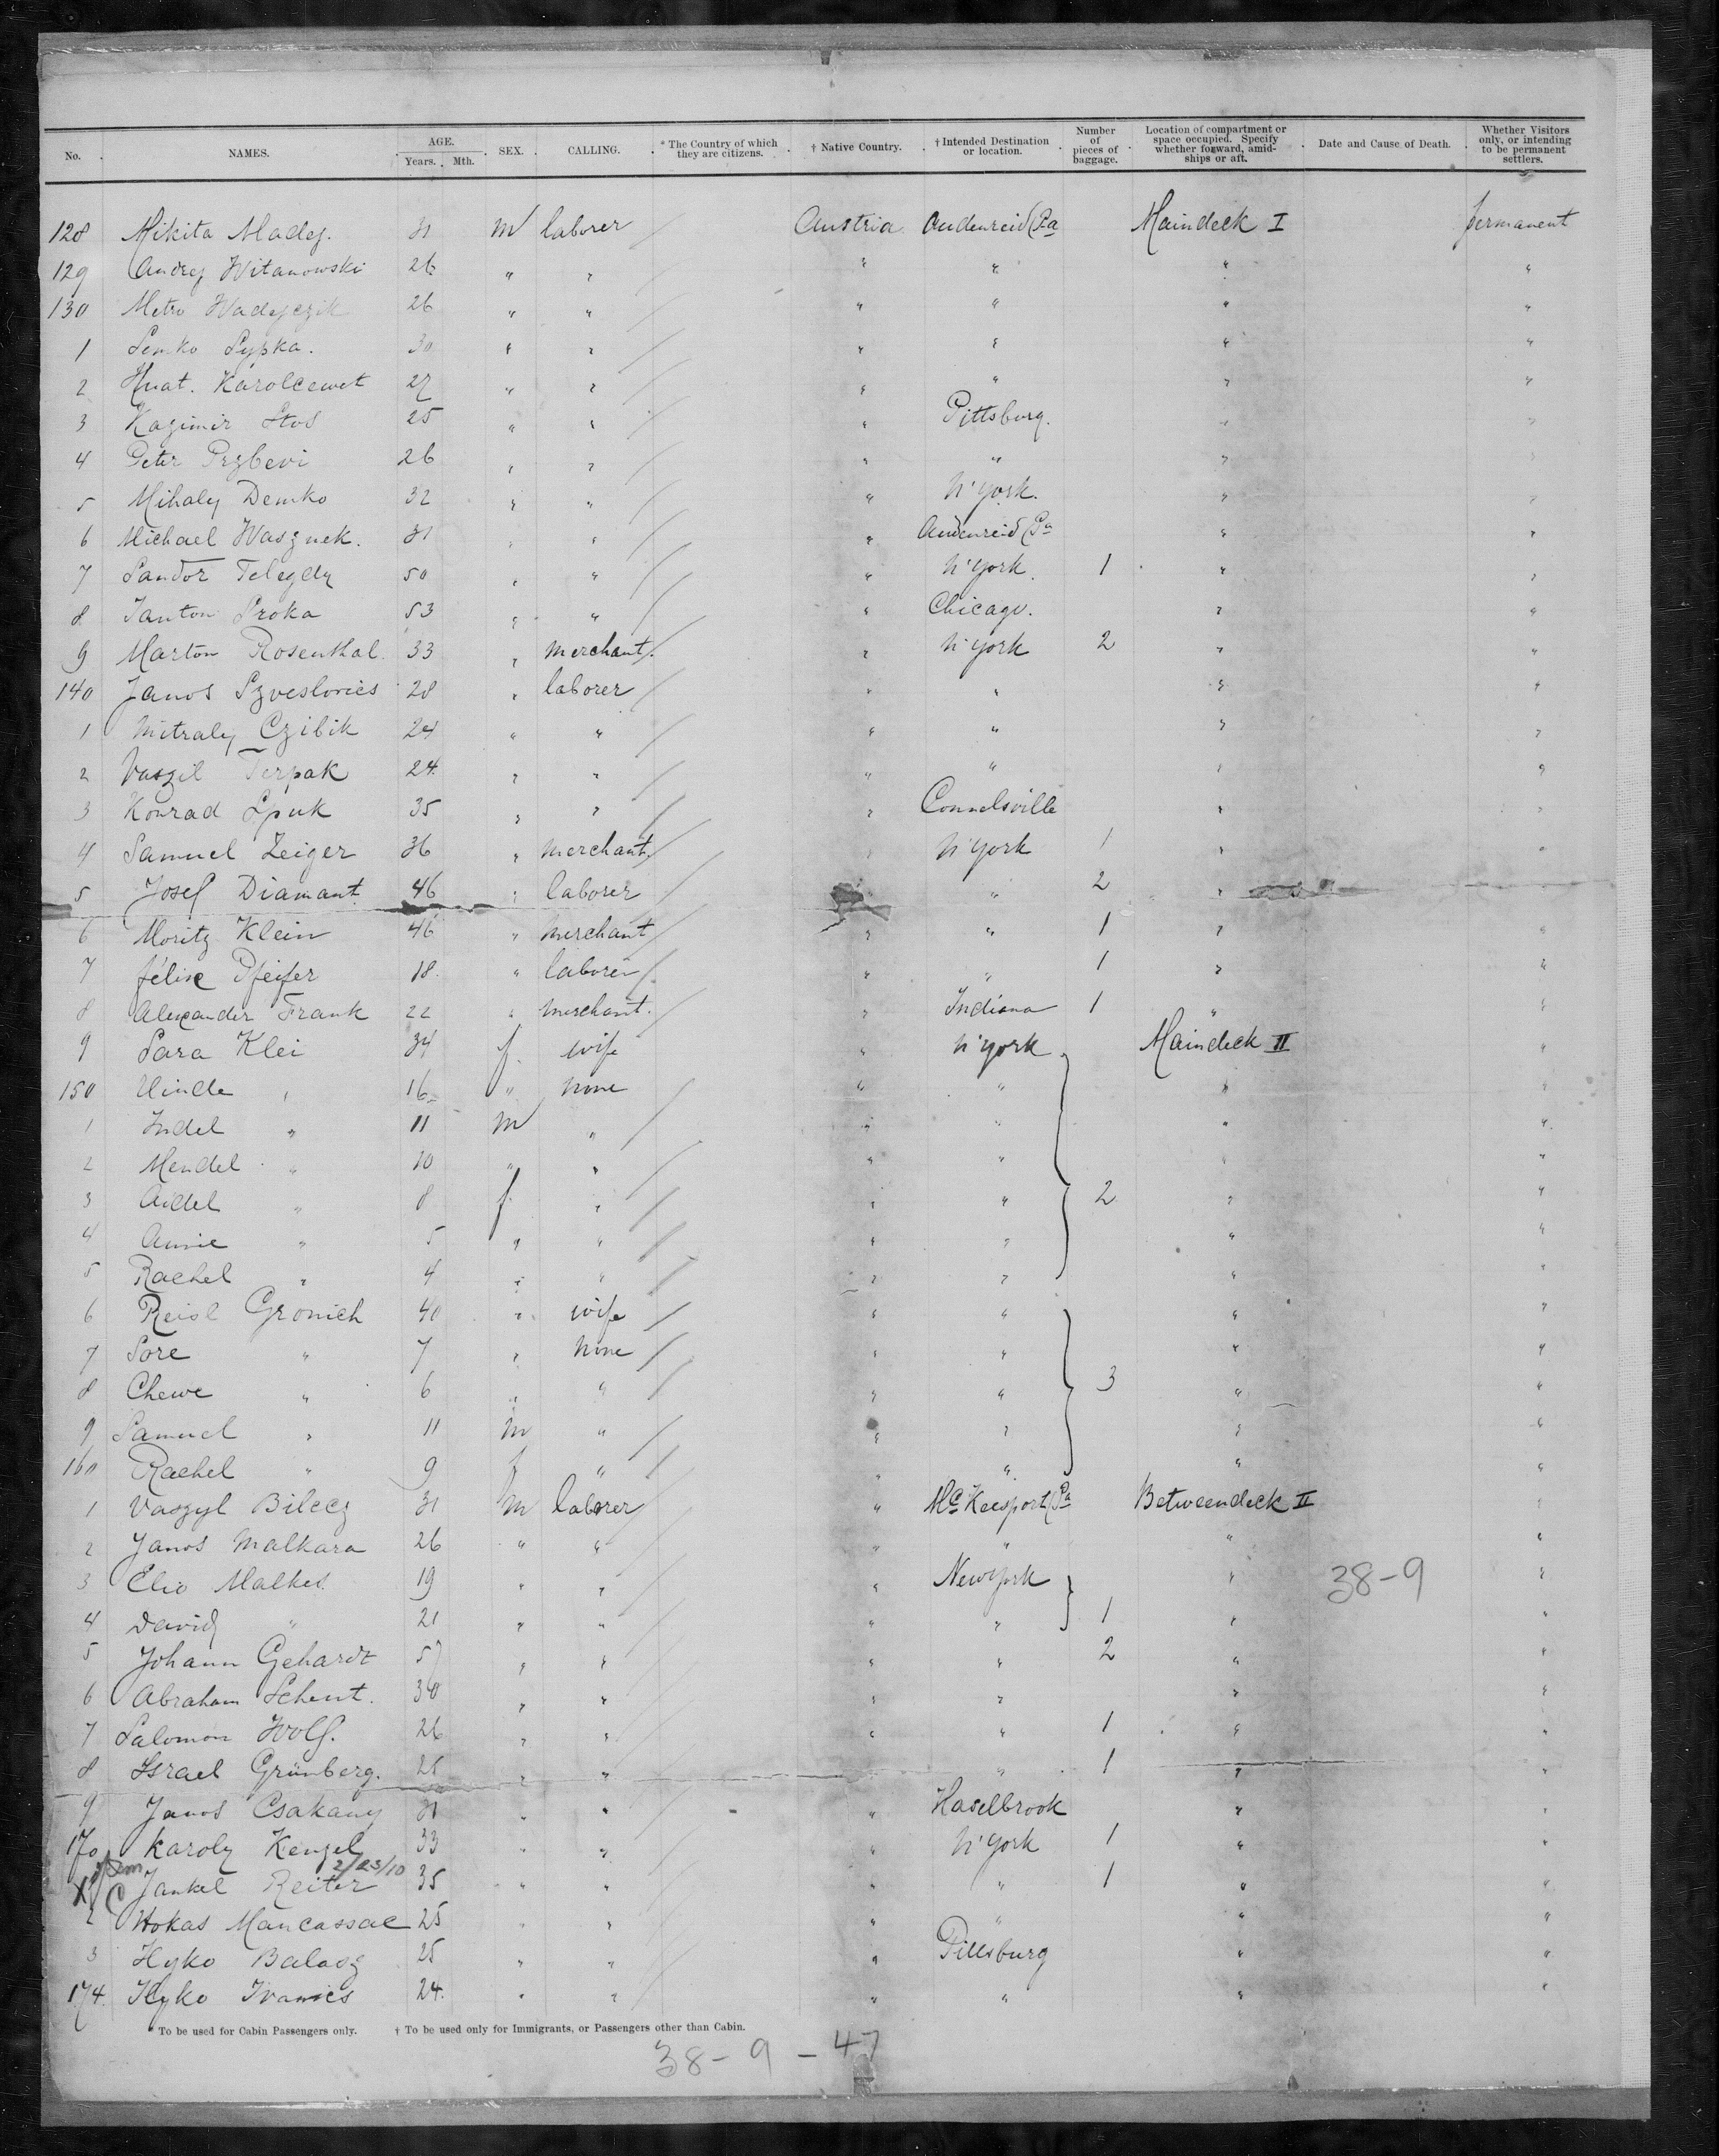 No. NAMES. AGE. Years. Mth. SEX. CALLING. * The Country of which they are citizens. † Native Country. † Intended Destination or location. Number of pieces of baggage. Location of compartment or space occupied. Specify whether forward, amidships or aft. Date and Cause of Death. Whether Visitors only, or intending to be permanent settlers.
128 Mikita Madej. 31 m laborer / Austria Audenreid (Pa Maindeck I permanent
129 Andrej Witanowski 26 " " / " " " "
130 Metro Wadejczik 26 " " / " " " "
1 Semko Sypka. 30 " " / " " " "
2 Hnat. Karolcewet 27 " " / " " " "
3 Kazimir Stos 25 " " / " Pittsburg. " "
4 Peter Przbevi 26 " " / " " " "
5 Mihaly Demko 32 " " / " N'York. " "
6 Michael Wasznek. 31 " " / " Audenreid (Pa " "
7 Sandor Telegdy 50 " " / " N'York. 1 " "
8 Janton Sroka 53 " " / " Chicago. " "
9 Marton Rosenthal. 33 " merchant. / " N'York 2 " "
140 Janos Szveslovics 28 " laborer / " " " "
1 Mitraly Czibik 24 " " / " " " "
2 Vaszil Terpak 24. " " / " " " "
3 Konrad Spuk 35 " " / " Connelsville " "
4 Samuel Zeiger 36 " merchant. / " N'York 1 " "
5 Josef Diamant 46 " laborer / " " 2 " "
6 Moritz Klein 46 " merchant / " " 1 " "
7 Felix Pfeifer 18. " laborer / " " 1 " "
8 Alexander Frank 22 " merchant. / " Indiana 1 " "
9 Sara Klei 34 f. wife " N'York Maindeck II "
150 Hinde " 16 " none / " " " "
1 Indel " 11 m " / " " " "
2 Mendel " 10 " " / " " " "
3 Aidel " 8 f. " / " " 2 " "
4 Annie " 5 " " / " " " "
5 Rachel " 4 " " / " " " "
6 Reisl Gronich 40 " wife / " " " "
7 Sore " 7 " none / " " " "
8 Chewe " 6 " " / " " 3 " "
9 Samuel " 11 m " / " " " "
160 Rachel " 9 f " / " " " "
1 Vaszyl Bilecz 31 m laborer / " McKeesport (Pa Betweendeck II "
2 Janos Malkara 26 " " / " " " "
3 Elio Malkes. 19 " " / " NewYork " 38-9 "
4 David " 21 " " / " " 1 " "
5 Johann Gehardt 57 " " / " " 2 " "
6 Abraham Schent. 30 " " / " " " "
7 Salomon Wolf. 26 " " / " " 1 " "
8 Israel Grünberg. 26 " " / " " 1 " "
9 Janos Csakany 31 " " / " Haselbrook " "
170 Karoly Kenzel 33 " " / " N'York 1 " "
2/23/10
Jankel Reiter 35 " " / " " 1 " "
2 Hokas Mancassac 25 " " / " " " "
3 Hyko Balasz 25 " " / " Pittsburg " "
174. Ilyko Ivanics 24. " " / " " " "
* To be used for Cabin Passengers only. † To be used only for Immigrants, or Passengers other than Cabin.
38-9-47